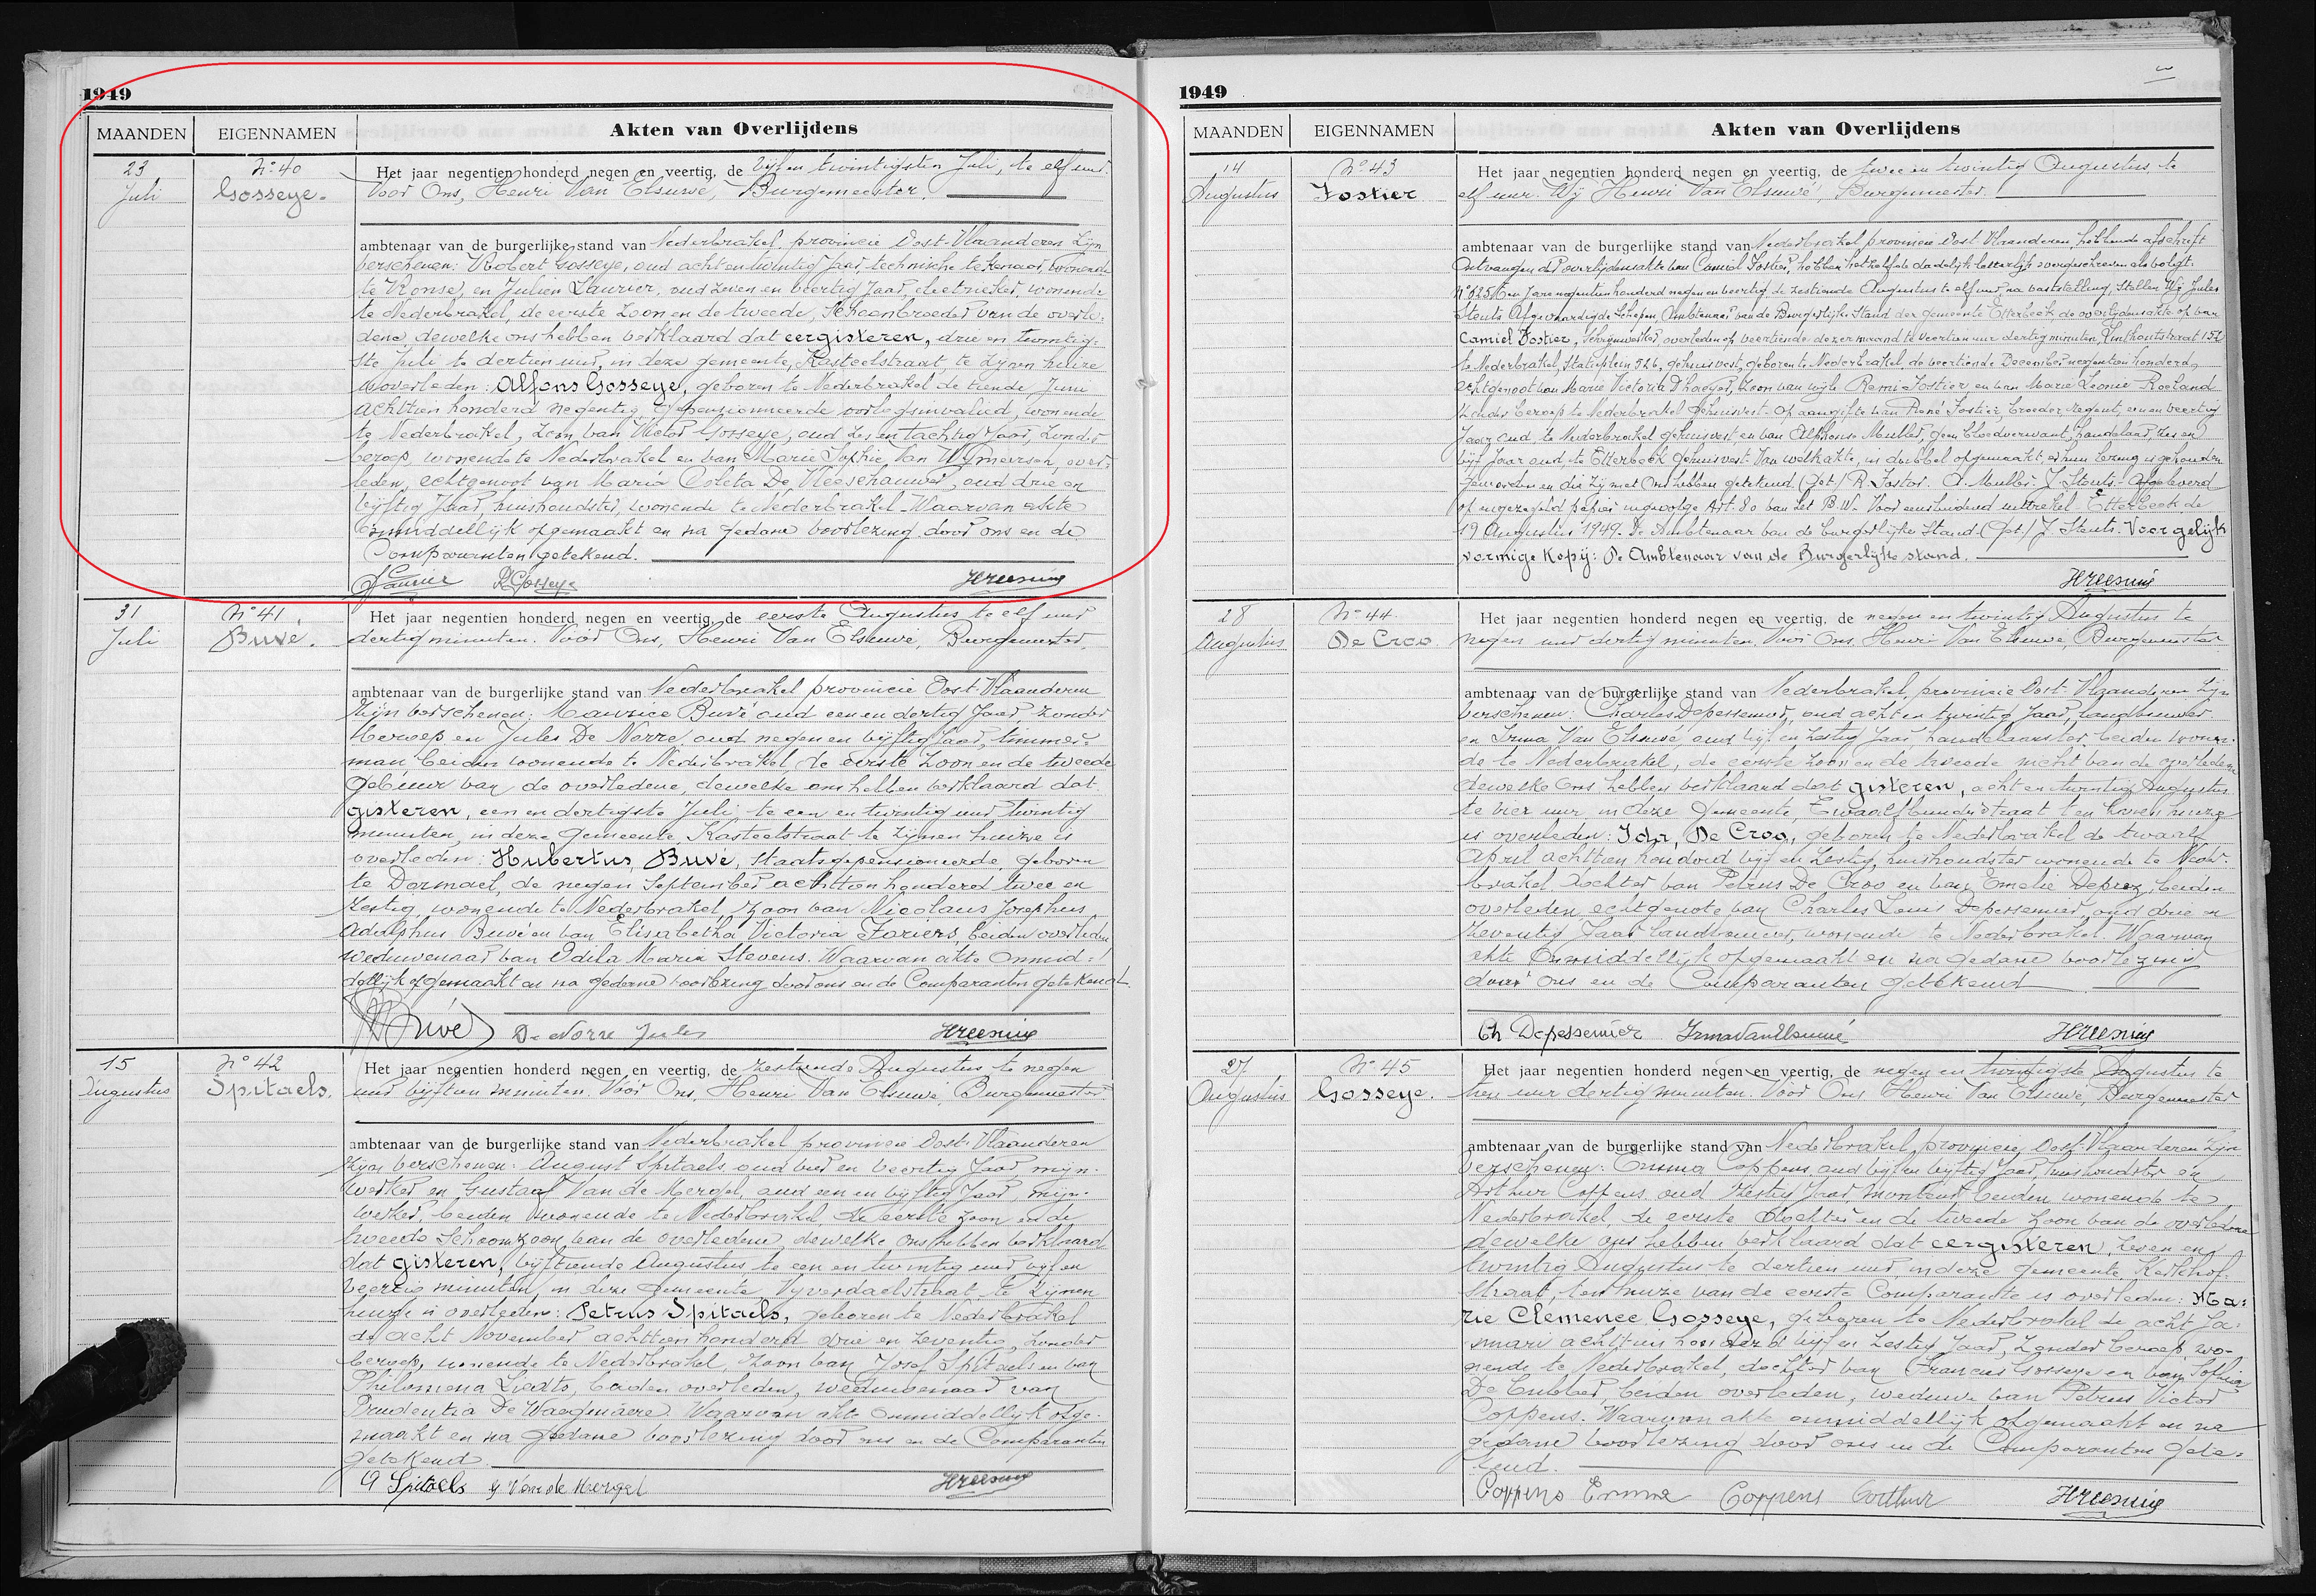 1949
MAANDEN EIGENNAMEN Akten van Overlijdens
23 Juli
N° 40 Gosseye.
Het jaar negentien honderd negen en veertig, de vijf en twintigsten Juli, te elf uur.
Voor Ons, Henri Van Elsuwé, Burgemeester.
ambtenaar van de burgerlijke stand van Nederbrakel, provincie Oost-Vlaanderen zijn
verschenen: Robert Gosseye, oud acht en twintig Jaar, technische tekenaar, wonende
te Ronse, en Julien Laurier, oud zeven en veertig Jaar, electrieker, wonende
te Nederbrakel, de eerste Zoon en de tweede, Schoonbroeder van de overle-
dene, dewelke ons hebben verklaard dat eergisteren, drie en twintig-
ste Juli te dertien uur, in deze gemeente, Kasteelstraat, te zijnen huize
is overleden: Alfons Gosseye, geboren te Nederbrakel de tiende Juni
achttien honderd negentig, gepensionneerde oorlogsinvalied, wonende
te Nederbrakel, Zoon van Victor Gosseye, oud zes en tachtig Jaar, Zonder
beroep, wonende te Nederbrakel en van Marie Sophie Van Wijmeersch, over-
leden, echtgenoot van Maria Coleta De Vleeschauwer, oud drie en
vijftig Jaar, huishoudster, wonende te Nederbrakel - Waarvan akte
Onmiddellijk opgemaakt en na gedane voorlezing door ons en de
Comparanten getekend.
Laurier R Gosseye
31 Juli
N° 41 Buvé.
Het jaar negentien honderd negen en veertig, de eerste Augustus te elf uur
dertig minuten. Voor Ons, Henri Van Elsuwé, Burgemeester,
ambtenaar van de burgerlijke stand van Nederbrakel provincie Oost-Vlaanderen
Zijn verschenen: Maurice Buvé oud een en dertig Jaar, zonder
beroep en Jules De Norre, oud negen en vijftig Jaar, timmer-
man beiden wonende te Nederbrakel, de eerste Zoon en de tweede
Gebuur van de overledene, dewelke ons hebben verklaard dat
gisteren, een en dertigste Juli te een en twintig uur twintig
minuten, in deze gemeente Kasteelstraat te zijnen huize is
overleden: Hubertus, Buvé, Staatsgepensioneerde, geboren
te Dormael, de negen September achttien honderd twee en
zestig, wonende te Nederbrakel, zoon van Nicolaus Josephus
Adulphus Buvé en van Elisabetha Victoria Foriers, beiden overleden
weduwenaar van Odila Maria Stevens. Waarvan akte Onmid-
dellijk opgemaakt en na gedane voorlezing door ons en de Comparanten getekend.
Buvé De Norre Jules
15 Augustus
N° 42 Spitaels.
Het jaar negentien honderd negen en veertig, de zestiende Augustus te negen
uur vijftien minuten. Voor Ons, Henri Van Elsuwé, Burgemeester
ambtenaar van de burgerlijke stand van Nederbrakel, provincie Oost-Vlaanderen
Zijn verschenen: August Spitaels, oud vier en veertig Jaar, mijn-
werker en Gustaaf Van de Mergel, oud een en vijftig Jaar, mijn-
werker, beiden wonende te Nederbrakel, de eerste zoon en de
tweede Schoonzoon van de overledene, dewelke ons hebben verklaard
dat gisteren, vijftiende Augustus, te een en twintig uur vijf en
veertig minuten, in deze gemeente Vijverdaelstraat, te zijnen
huize is overleden: Petrus Spitaels, geboren te Nederbrakel
de acht November achttien honderd drie en zeventig, zonder
beroep, wonende te Nederbrakel, zoon van Josef Spitaels en van
Philomena Liedts, beiden overleden, weduwenaar van
Prudentia De Waegenaere. Waarvan akte Onmiddellijk opge-
maakt en na gedane voorlezing door ons en de Comparanten
getekend.
Spitaels G Van de Mergel
1949
MAANDEN EIGENNAMEN Akten van Overlijdens
14 Augustus
N° 43 Fostier
Het jaar negentien honderd negen en veertig, de twee en twintig Augustus, te
elf uur. Wij Henri Van Elsuwé, Burgemeester.
ambtenaar van de burgerlijke stand van Nederbrakel provincie Oost-Vlaanderen, hebbende afschrift
ontvangen der overlijdensakte van Camiel Fostier, hebben het zelfde dadelijk letterlijk overgeschreven als volgt:
ten Jare negentien honderd negen en veertig, de zestiende Augustus te elf uur na vaststelling, Stellen Wij Jules
Stenls Afgevaardigde Schepen Ambtenaar van de Burgerlijke Stand der gemeente Etterbeek de overlijdensakte op van
Camiel Fostier, Schrijnwerker overleden op veertiende dezer maand te veertien uur dertig minuten, Linthoutstraat 152
te Nederbrakel, Statieplein gehuisvest, geboren te Nederbrakel, de veertiende December negentien honderd,
echtgenoot van Marie Victoria D'haeyer, Zoon van wijle Remi Fostier en van Marie Leonie Roeland
zonder beroep te Nederbrakel gehuisvest. Op aangifte van René Fostier, broeder, Regent, een en veertig
Jaar oud, te Nederbrakel gehuisvest en van Alphonse Muller, geen bloedverwant, handelaar, zes en
vijf Jaar oud, te Etterbeek gehuisvest. Van welk akte, in dubbel opgemaakt, er hun lezing is gehouden
geworden en die zij met Ons hebben getekend. (Get.) R. Fostier. A. Muller. J. Stenls. Afgeleverd
op ongezegeld papier ingevolge Art. 80 van het B.W. Voor eensluidend uittreksel Etterbeek de
19 Augustus 1949. De Ambtenaar van de burgerlijke Stand. (Get.) J. Stenls. Voor gelijk
vormige Kopij: De Ambtenaar van de Burgerlijke stand.
28 Augustus
N° 44. De Croo.
Het jaar negentien honderd negen en veertig, de negen en twintig Augustus te
negen uur dertig minuten. Voor Ons, Henri Van Elsuwé, Burgemeester
ambtenaar van de burgerlijke stand van Nederbrakel, provincie Oost-Vlaanderen zijn
verschenen: Charles Depessemier, oud acht en twintig Jaar, landbouwer
en Irma Van Elsuwé, oud vijf en zestig Jaar, handelaarster, beiden wonen-
de te Nederbrakel, de eerste zoon en de tweede nicht van de overledene
dewelke Ons hebben verklaard dat gisteren, acht en twintig Augustus
te vier uur in deze gemeente, Twaalfbunderstraat ten haren huize
is overleden: Ida, De Croo, geboren te Nederbrakel de twaalf
April achttien honderd vijf en zestig, huishoudster wonende te Neder-
brakel, dochter van Petrus De Croo en van Emelie Deprez, beiden
overleden, echtgenote van Charles Louis Depessemier, oud drie en
zeventig Jaar landbouwer, wonende te Nederbrakel. Waarvan
akte Onmiddellijk opgemaakt en na gedane voorlezing
door ons en de Comparanten getekend
Ch Depessemier Irma Van Elsuwé
27 Augustus
N° 45 Gosseye.
Het jaar negentien honderd negen en veertig, de negen en twintigste Augustus te
tien uur dertig minuten. Voor Ons Henri Van Elsuwé, Burgemeester
ambtenaar van de burgerlijke stand van Nederbrakel, provincie Oost-Vlaanderen zijn
verschenen: Emma Coppens, oud vijf en vijftig Jaar, huishoudster en
Arthur Coppens, oud zestig Jaar beiden wonende te
Nederbrakel, de eerste dochter en de tweede zoon van de overledene
dewelke ons hebben verklaard dat eergisteren, zeven en
twintig Augustus te dertien uur, in deze gemeente Kerkhof-
straat, ten huize van de eerste Comparante is overleden: Ma-
rie Clémence Gosseye, geboren te Nederbrakel de acht Ja-
nuari achttien honderd vijf en zestig Jaar, Zonder beroep, wo-
nende te Nederbrakel, dochter van Francies Gosseye en van Sophia
De Cubber, beiden overleden, weduwe van Petrus Victor
Coppens. Waarvan akte onmiddellijk opgemaakt en na
gedane voorlezing door ons en de Comparanten gete-
kend.
Coppens Emma Coppens Arthur